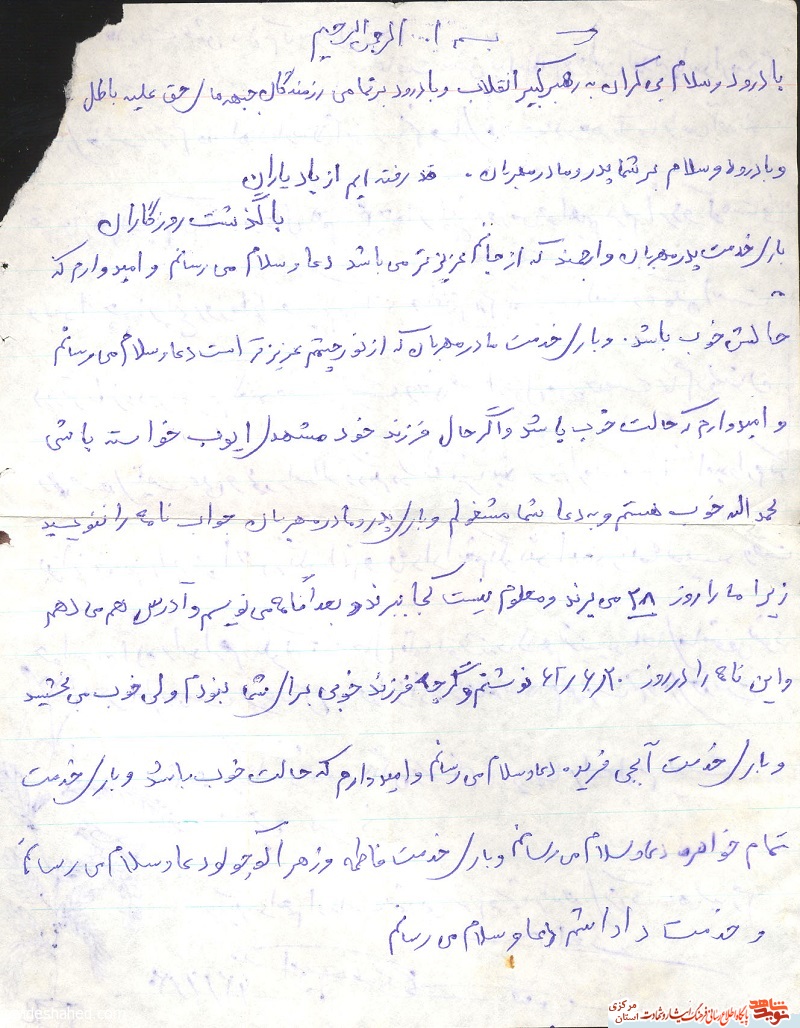 بسم ا... الرحمن الرحیم
با درود و سلام بی کران به رهبر کبیر انقلاب و با درود بر تمامی رزمندگان جبهه های حق علیه باطل
و با درود و سلام بر شما پدر و مادر مهربان . رفته ایم از یاد یاران
با گذشت روزگاران
باری خدمت پدر مهربان و ارجمند که از جانم عزیزتر می باشد دعا و سلام می رسانم و امیدوارم که
حالش خوب باشد. و باری خدمت مادر مهربان که از نور چشمم عزیزتر است دعا و سلام می رسانم
و امیدوارم که حالت خوب باشد و اگر حال فرزند خود مشهدی ایوب خواسته باشی
لحمد اله خوب هستم و به دعا شما مشغولم و باری پدر و مادر مهربان جواب نامه را ننویسید
زیرا ما را روز ۲۸ می برند و معلوم نیست کجا ببرند و بعداً نامه می نویسم و آدرس هم می دهم
و این نامه را در روز ۶۲/۶/۲۰ نوشتم و گرچه فرزند خوبی برای شما نبودم ولی خوب می بخشید
و باری خدمت آبجی فریده دعا و سلام می رسانم و امیدوارم که حالت خوب باشد و باری خدمت
تمام خواهره دعا و سلام می رسانم و باری خدمت فاطمه و زهرا کوچولو دعا و سلام می رسانم
و خدمت داداشم دعا و سلام می رسانم
نوید شاهد
پایگاه اطلاع رسانی فرهنگ ایثار و شهادت
استان مرکزی
navideshahed.com